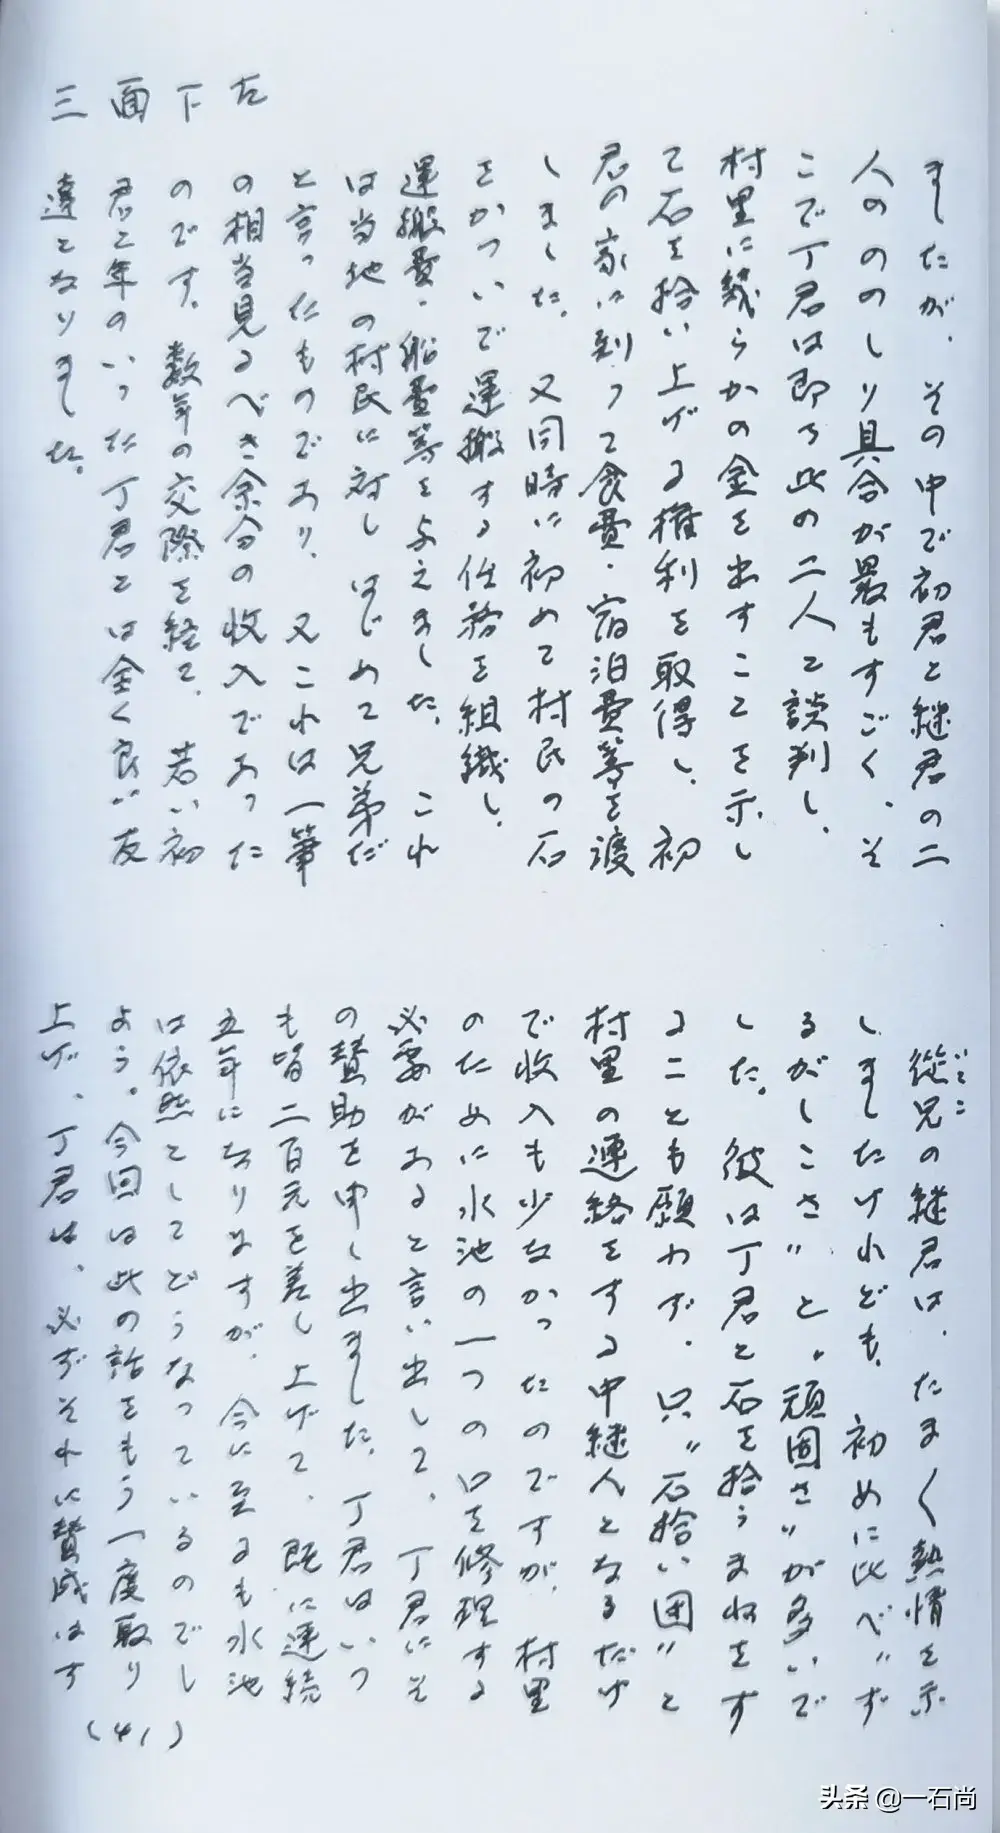 ましたが、その中で初君と継君の二
人のののしり具合が最もすごく、そ
こで丁君は即ち此の二人と談判し、
村里に幾らかの金を出すことを示し
て石を拾い上げる権利を取得し、初
君の家に到って食費・宿泊費等を渡
しました。又同時に初めて村民の石
をかついで運搬する任務を組織し、
運搬費・船費等を与えました。これ
は当地の村民に対しはじめて兄弟だ
と言ったものであり、又これは一筆
の相当見るべき余分の収入であった
のです。数年の交際を経て、若い初
君と年のいった丁君とは全く良い友
達となりました。
左
下
面
三
いとこ
従兄の継君は、たまく熱情を示
しましたけれども、初めに比べ"ず
るがしこさ"と"頑固さ"が多いで
した。彼は丁君と石を拾うまねをす
ることも願わず、只"石拾い団"と
村里の連絡をする中継人となるだけ
で収入も少なかったのですが、村里
のために水池の一つの口を修理する
必要があると言い出して、丁君にそ
の賛助を申し出ました。丁君はいつ
も皆二百元を差し上げて、既に連続
五年になりますが、今に至るも水池
は依然としてどうなっているのでし
ょう。今回は此の話をもう一度取り
上げ、丁君は、必ずそれに賛成はす
(41)
头条 @一石尚